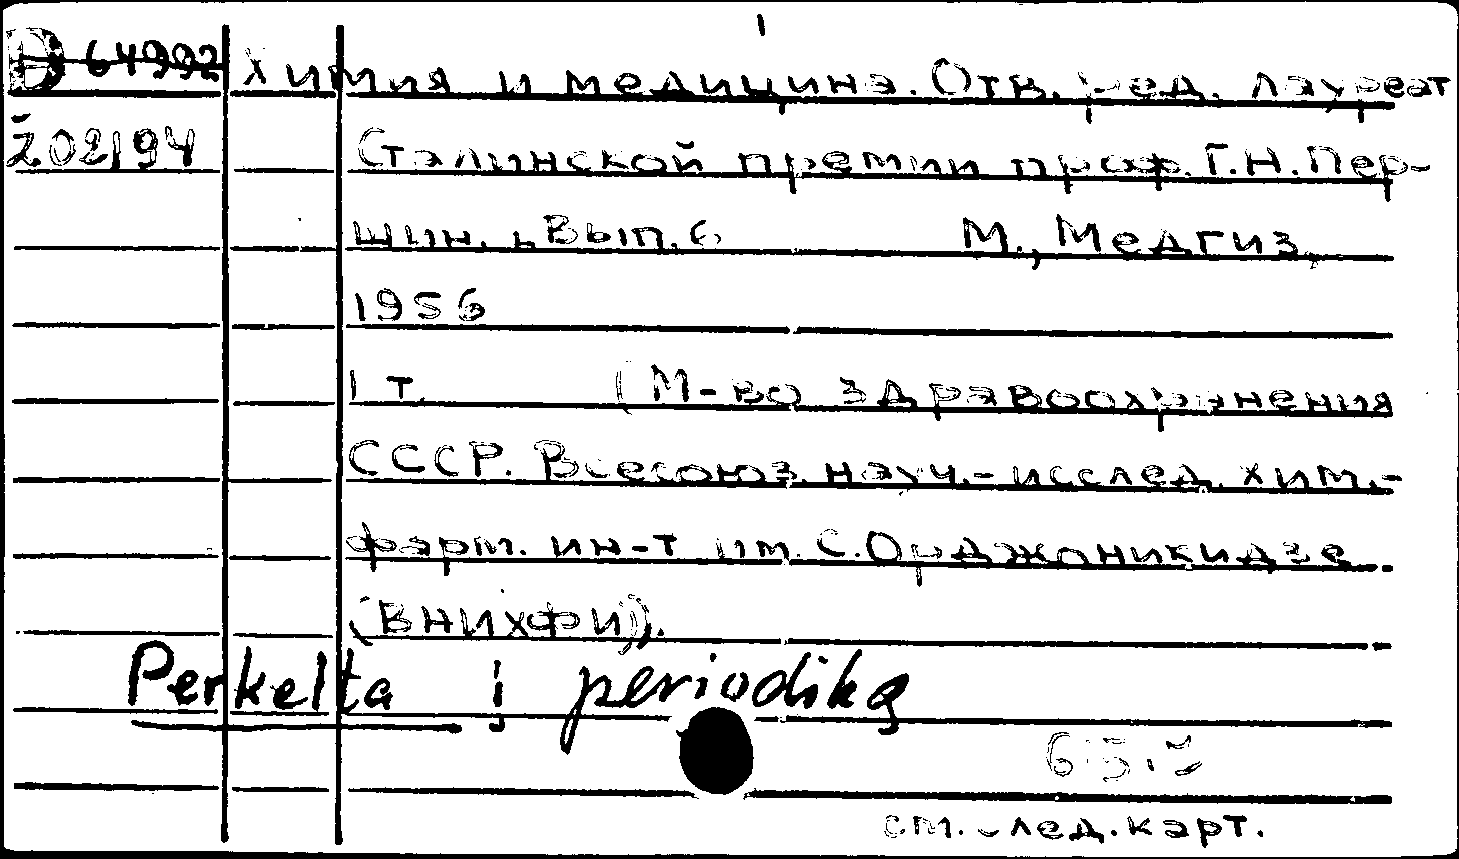 D 64992 Химия и медицина. Отв. ред. лауреат
Ž02194 Сталинской премии проф. Г.Н. Пер-
шин. , Вып. 6 М., Медгиз,
1956
1 т. (М-во здравоохранения
СССР. Всесоюз. науч.-исслед. хим.-
фарм. ин-т им. С. Орджоникидзе
(ВНИХФИ)).
Perkelta į periodiką
см. след. карт.